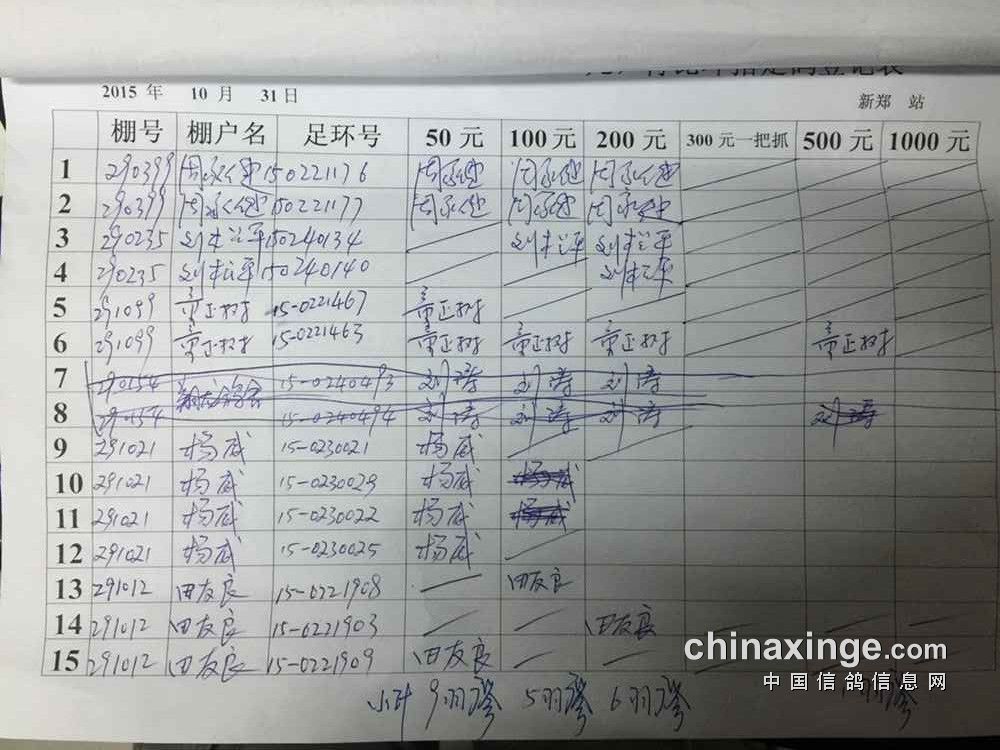 指定鸽登记表
2015 年 10 月 31 日 新郑 站
棚号 棚户名 足环号 50 元 100 元 200 元 300 元一把抓 500 元 1000 元
1 290399 周永健 150221176 周永健 周永健 周永健
2 290399 周永健 150221177 周永健 周永健 周永健
3 290235 刘 平 150240134 刘 平 刘 平
4 290235 刘 平 150240140 刘 平
5 291099 童正树 15-0221467 童正树
6 291099 童正树 15-0221463 童正树 童正树 童正树 童正树
7 290154 15-0240493 刘涛 刘涛 刘涛
8 290154 15-0240494 刘涛 刘涛 刘涛 刘涛
9 291021 杨威 15-0230021 杨威
10 291021 杨威 15-0230029 杨威 杨威
11 291021 杨威 15-0230022 杨威 杨威
12 291021 杨威 15-0230025 杨威
13 291012 田友良 15-0221908 田友良
14 291012 田友良 15-0221903 田友良
15 291012 田友良 15-0221909 田友良
chinaxinge.com
中国信鸽信息网
小计 9羽 5羽 6羽 羽